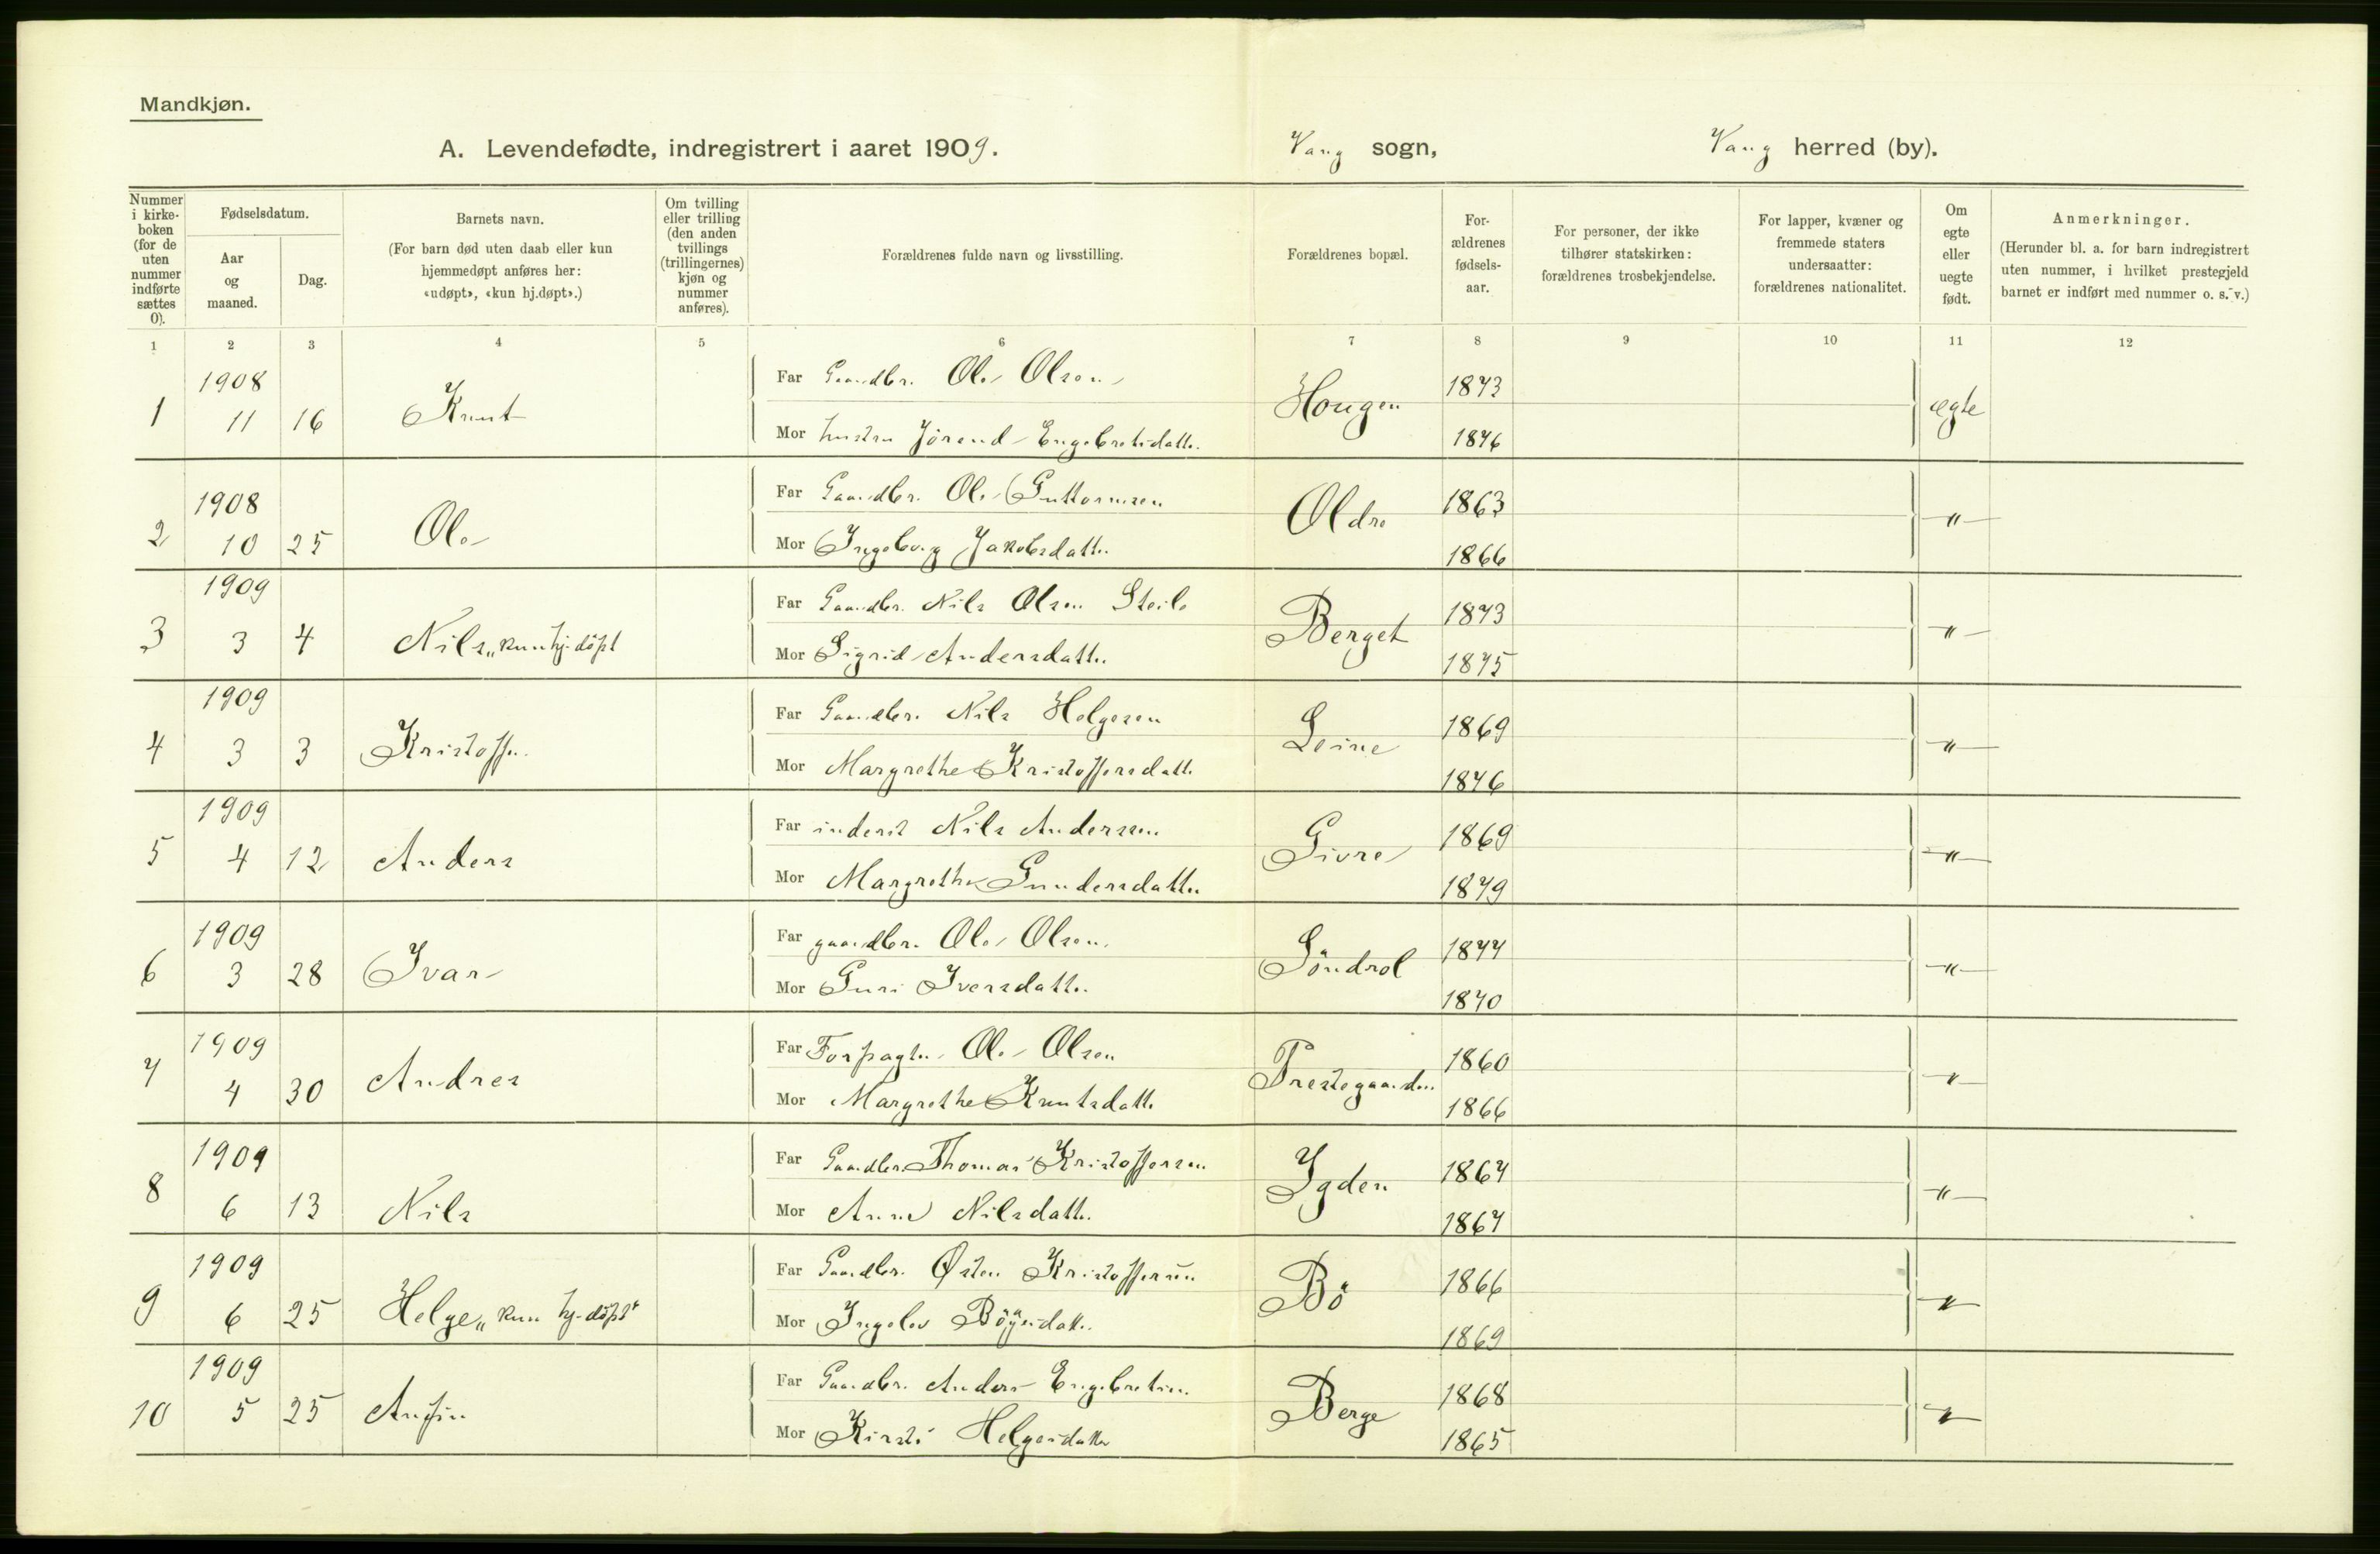 Mandkjøn.
A. Levendefødte, indregistrert i aaret 1909. Vang sogn, Vang herred (by).
Nummer i kirke-boken (for de uten nummer indførte sættes 0).
Fødselsdatum.
Aar og maaned.
Dag.
Barnets navn.
(For barn død uten daab eller kun hjemmedøpt anføres her: «udøpt», «kun hj.døpt».)
Om tvilling eller trilling (den anden tvillings (trillingernes) kjøn og nummer anføres).
Forældrenes fulde navn og livsstilling.
Forældrenes bopæl.
For-ældrenes fødsels-aar.
For personer, der ikke tilhører statskirken: forældrenes trosbekjendelse.
For lapper, kvæner og fremmede staters undersaatter: forældrenes nationalitet.
Om egte eller uegte født.
Anmerkninger.
(Herunder bl. a. for barn indregistrert uten nummer, i hvilket prestegjeld barnet er indført med nummer o. s. v.)
1 2 3 4 5 6 7 8 9 10 11 12
1 1908 11 16 Knut Far Gaardbr. Ole Olsen Hougen 1873 egte
Mor hustru Jörend Engebretsdatter 1876
2 1908 10 25 Ole Far Gaardbr. Ole Guttormsen Oldre 1863 -"-
Mor Ingeborg Jakobsdatter 1866
3 1909 3 4 Nils „kun hj-döpt Far Gaardbr. Nils Olsen Steile Berget 1873 -"-
Mor Sigrid Andersdatter 1875
4 1909 3 3 Kristoffer Far Gaardbr. Nils Helgesen Leine 1869 -"-
Mor Margrethe Kristoffersdatter 1876
5 1909 4 12 Anders Far inderst Nils Anderssen Givre 1869 -"-
Mor Margrethe Gundersdatter 1879
6 1909 3 28 Ivar Far gaardbr. Ole Olsen Söndrol 1877 -"-
Mor Guri Iversdatter 1870
7 1909 4 30 Andres Far Forpagter Ole Olsen Prestegaarden 1860 -"-
Mor Margrethe Knutsdatter 1866
8 1909 6 13 Nils Far Gaardbr. Thomas Kristoffersen Ygden 1867 -"-
Mor Anne Nilsdatter 1867
9 1909 6 25 Helge „kun hj-döpt" Far Gaardbr. Østen Kristoffersen Bö 1866 -"-
Mor Ingelev 1869
10 1909 5 25 Anfin Far Gaardbr. Anders Engebretsen Berge 1868 -"-
Mor Kirsti Helgesdatter 1865